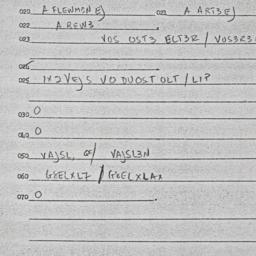 020 A FLEWMSN EJ 021 A ART3 EJ
022 A REW3
023 VOS OST3 ELT3R / VOS3R3
025 1X2VEJS VO DUOST OLT / L1P
030 O
040 O
050 VAJSL, / VAJSL3N
060 GXELXL7 / GXELXLAX
070 O